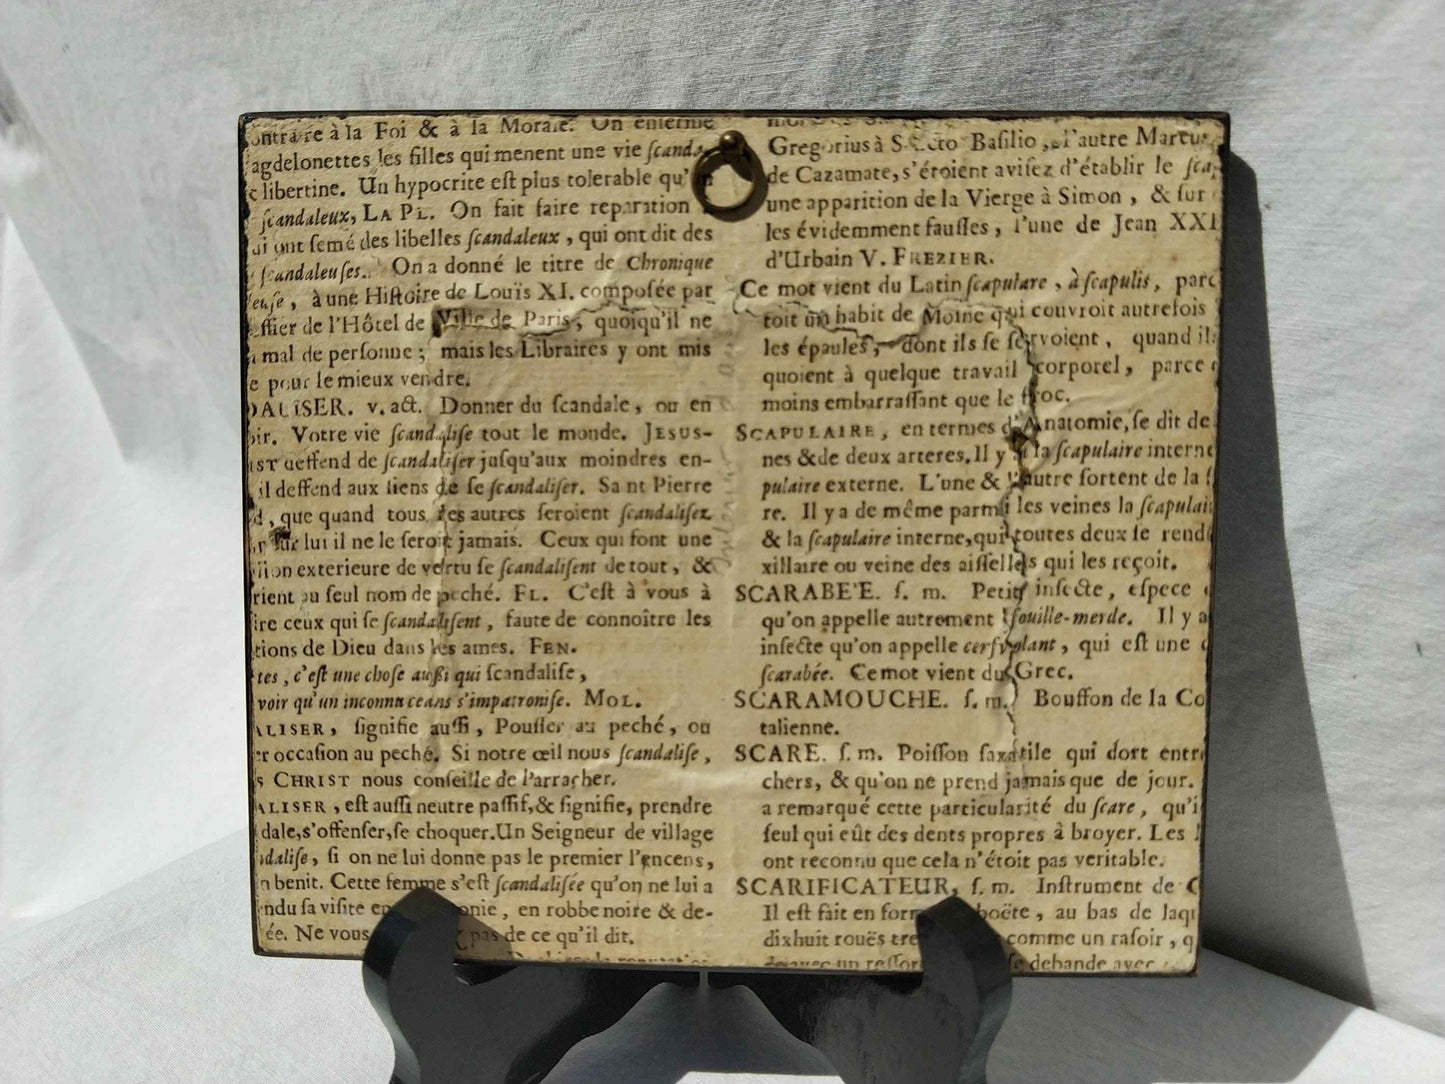 à la Foi & à la Morale. On enferme
les filles qui menent une vie
libertine. Un hypocrite eſt plus tolerable qu'
ſcandaleux, LA PL. On fait faire reparation
ont ſemé des libelles ſcandaleux, qui ont dit des
ſcandaleuſes. On a donné le titre de Chronique
à une Hiſtoire de Louïs XI. compoſée par
de l'Hôtel de Ville de Paris, quoiqu'il ne
mal de perſonne; mais les Libraires y ont mis
pour le mieux vendre.
DALISER. v. act. Donner du ſcandale, ou en
Votre vie ſcandaliſe tout le monde. JESUS-
deffend de ſcandaliſer juſqu'aux moindres en-
il deffend aux liens de ſe ſcandaliſer. Saint Pierre
que quand tous les autres ſeroient ſcandaliſez
lui il ne le ſeroit jamais. Ceux qui font une
exterieure de vertu ſe ſcandaliſent de tout, &
au ſeul nom de peché. FL. C'eſt à vous à
ire ceux qui ſe ſcandaliſent, faute de connoître les
tions de Dieu dans les ames. FEN.
tes, c'eſt une choſe auſſi qui ſcandaliſe,
voir qu'un inconnu ceans s'impatroniſe. MOL.
ALISER, ſignifie auſſi, Pouſſer au peché, ou
occaſion au peché. Si notre œil nous ſcandaliſe,
s CHRIST nous conſeille de l'arracher.
ALISER, eſt auſſi neutre paſſif, & ſignifie, prendre
dale, s'offenſer, ſe choquer. Un Seigneur de village
daliſe, ſi on ne lui donne pas le premier l'encens,
benit. Cette femme s'eſt ſcandaliſée qu'on ne lui a
ndu ſa viſite en onie, en robbe noire & de-
ée. Ne vous pas de ce qu'il dit.
Gregorius à Basilio, l'autre
de Cazamate, s'étoient aviſez d'établir le
une apparition de la Vierge à Simon, & ſur
les évidemment fauſſes, l'une de Jean XXI
d'Urbain V. FREZIER.
Ce mot vient du Latin ſcapulare, à ſcapulis, parc
toit un habit de Moine qui couvroit autrefois
les épaules, dont ils ſe ſervoient, quand il
quoient à quelque travail corporel, parce
moins embarraſſant que le froc.
SCAPULAIRE, en termes d'Anatomie, ſe dit de
nes & de deux arteres. Il y a la ſcapulaire interne
pulaire externe. L'une & l'autre ſortent de la
re. Il y a de même parmi les veines la ſcapulai
& la ſcapulaire interne, qui toutes deux ſe rend
xillaire ou veine des aiſſelles qui les reçoit.
SCARABE'E. ſ. m. Petit inſecte, eſpece
qu'on appelle autrement fouille-merde. Il y a
inſecte qu'on appelle cerf volant, qui eſt une
ſcarabée. Ce mot vient du Grec.
SCARAMOUCHE. ſ. m. Bouffon de la Co
talienne.
SCARE. ſ. m. Poiſſon ſaxatile qui dort entre
chers, & qu'on ne prend jamais que de jour.
a remarqué cette particularité du ſcare, qu'i
ſeul qui eût des dents propres à broyer. Les
ont reconnu que cela n'étoit pas veritable.
SCARIFICATEUR, ſ. m. Inſtrument de
Il eſt fait en boëte, au bas de laqu
dixhuit rouës comme un raſoir,
un debande avec